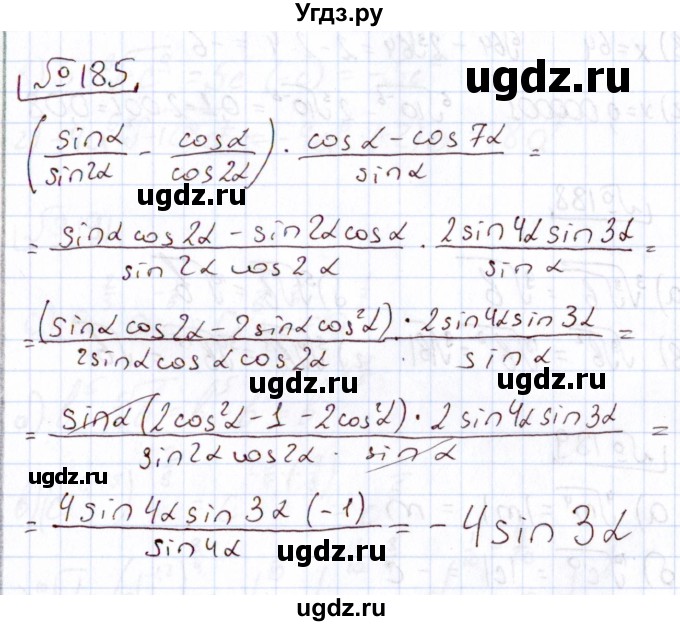 Угдз.ру
№185.
ugdz.ru
(sinα/sin2α - cosα/cos2α) · (cosα - cos7α)/sinα =
ugdz.ru
= (sinα cos2α - sin2α cosα)/(sin2α cos2α) · (2sin4α sin3α)/(sinα) =
= (sinα cos2α - 2sinα cos²α) · 2sin4α sin3α/(2sinα cosα cos2α · sinα) =
ugdz.ru ugdz.ru
= sinα(2cos²α - 1 - 2cos²α) · 2sin4α sin3α/(sin2α cos2α · sinα) =
ugdz.ru
= 4sin4α sin3α (-1)/(sin4α) = -4sin3α
ugdz.ru
ugdz.ru